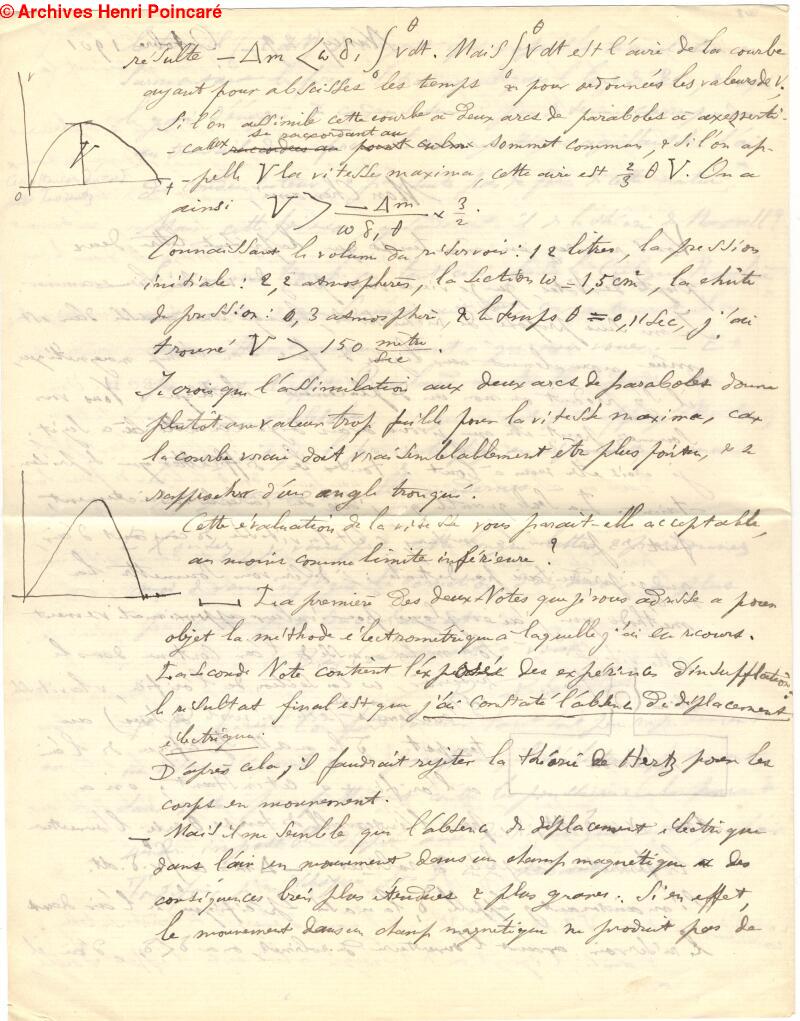 © Archives Henri Poincaré
résulte − Δm < ω δ₁ ∫₀^θ V dt. Mais ∫₀^θ V dt est l'aire de la courbe
ayant pour abscisses les temps & pour ordonnées les valeurs de V.
Si l'on assimile cette courbe à deux arcs de paraboles à axes verti-
-caux se raccordant au sommet commun, & si l'on ap-
-pelle V la vitesse maxima, cette aire est 2/3 θ V. On a
ainsi V > −Δm / ω δ₁ θ × 3/2.
V
V
O
t
Connaissant le volume du réservoir : 12 litres, la pression
initiale : 2,2 atmosphères, la section ω = 1,5 cm², la chûte
de pression : 0,3 atmosphère, & le temps θ = 0,11 sec, j'ai
trouvé V > 150 mètr/sec.
Je crois que l'assimilation aux deux arcs de paraboles donne
plutôt une valeur trop faible pour la vitesse maxima, car
la courbe vraie doit vraisemblablement être plus pointue, & se
rapprocher d'un angle tronqué.
Cette évaluation de la vitesse vous paraît-elle acceptable,
au moins comme limite inférieure ?
— La première des deux Notes que je vous adresse a pour
objet la méthode électrométrique à laquelle j'ai eu recours.
La seconde Note contient l'exposé des expériences d'insufflation :
le résultat final est que j'ai constaté l'absence de déplacement
électrique.
D'après cela, il faudrait rejeter la théorie de Hertz pour les
corps en mouvement.
— Mais il me semble que l'absence de déplacement électrique
dans l'air en mouvement dans un champ magnétique a des
conséquences bien plus étendues & plus graves. Si en effet,
le mouvement dans un champ magnétique ne produit pas de